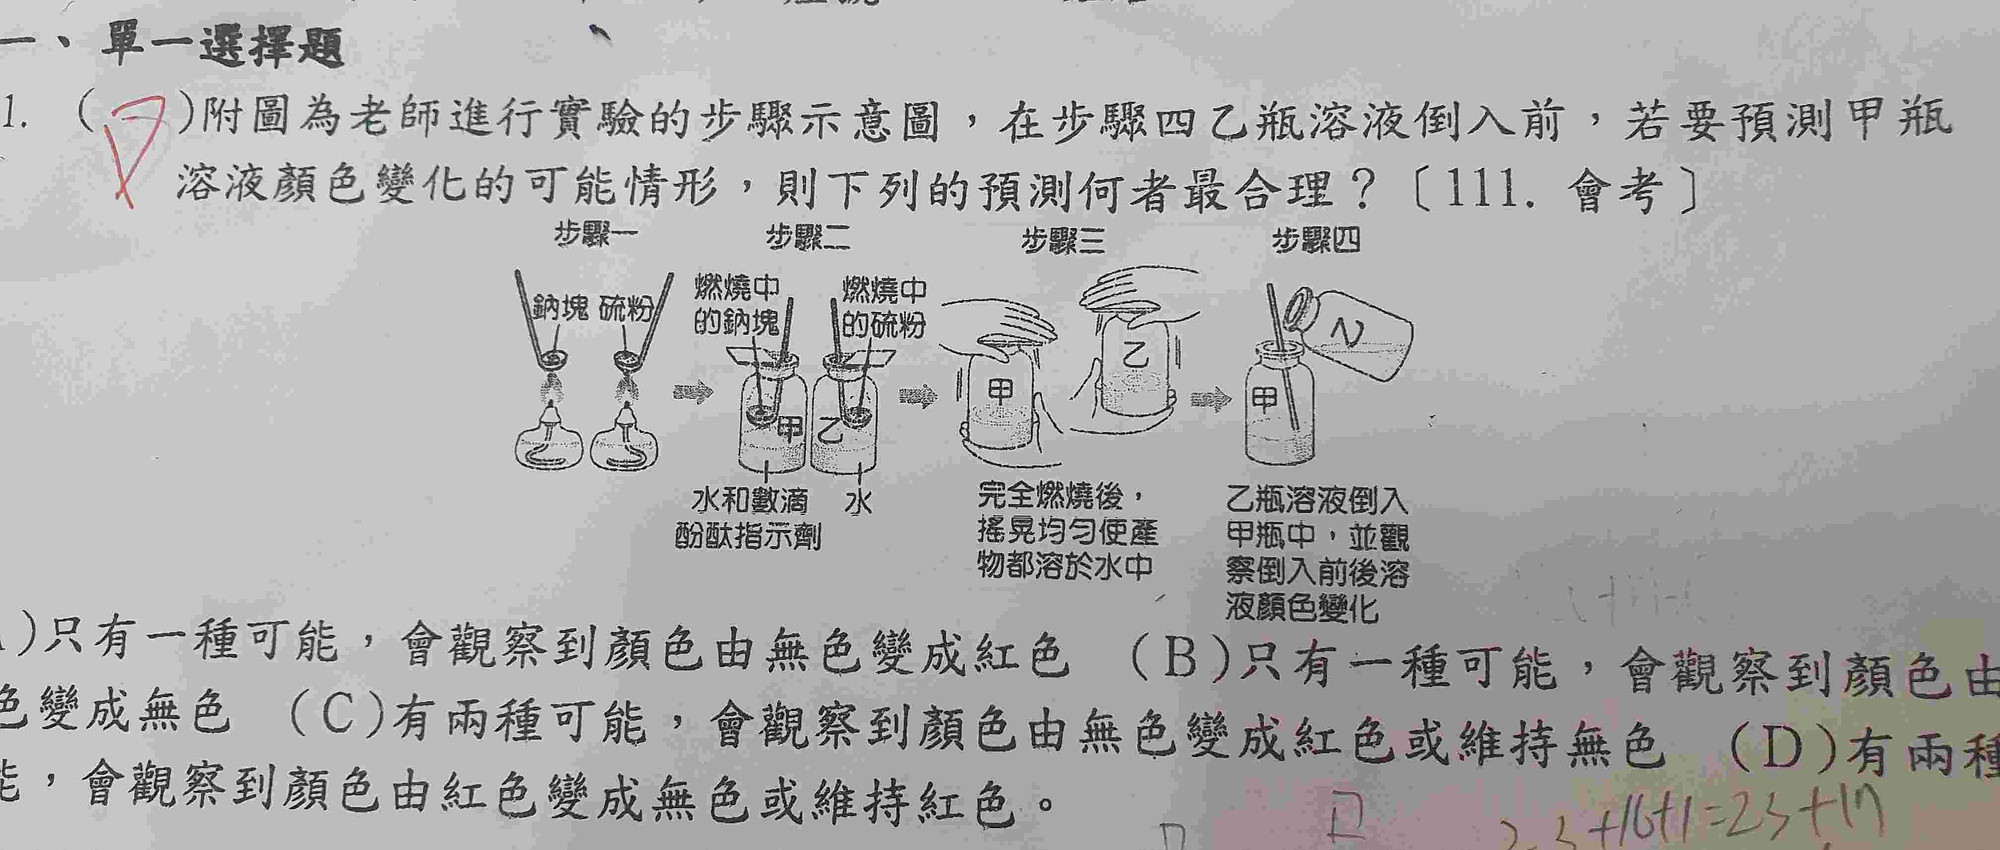 一、單一選擇題
1. (D)附圖為老師進行實驗的步驟示意圖，在步驟四乙瓶溶液倒入前，若要預測甲瓶
溶液顏色變化的可能情形，則下列的預測何者最合理？〔111. 會考〕
步驟一 步驟二 步驟三 步驟四
鈉塊 硫粉
燃燒中
的鈉塊
燃燒中
的硫粉
甲 乙
甲
乙
甲
乙
水和數滴
酚酞指示劑
水
完全燃燒後，
搖晃均勻使產
物都溶於水中
乙瓶溶液倒入
甲瓶中，並觀
察倒入前後溶
液顏色變化
)只有一種可能，會觀察到顏色由無色變成紅色 (B)只有一種可能，會觀察到顏色由
色變成無色 (C)有兩種可能，會觀察到顏色由無色變成紅色或維持無色 (D)有兩種
能，會觀察到顏色由紅色變成無色或維持紅色。
+16+1=23+17